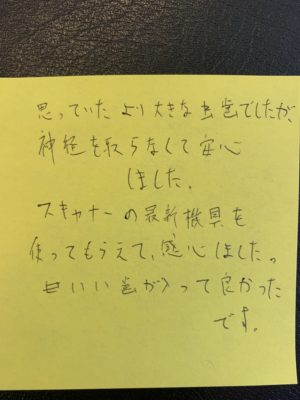 思っていたより大きな虫歯でしたが、
神経を取らなくて安心
しました。
スキャナーの最新機具を
使ってもらえて、感心しました。
いい歯が入って良かった
です。